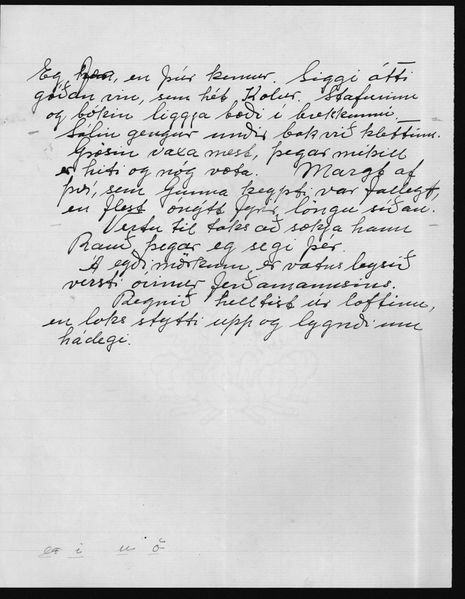 Eg fer, en þér kemur. Siggi átti
góðan vin, sem hét Kolur. Stafurinn
og bókin liggja bæði í brekkunni.
Sólin gengur undir bak við klettinn.
Grösin vaxa mest, þegar mikill
er hiti og nóg væta. Margt af
því, sem Gunna keypti, var fallegt,
en flest ónýtt fyrir löngu síðan.
Vertu til taks að sækja hann
Rauð, þegar eg segi þér.
Á eyðimörkum, er vatnsleysið
versti óvinur ferðamannsins.
Regnið helltist úr loftinu,
en loks stytti upp og lygndi um
hádegi.
i u ö